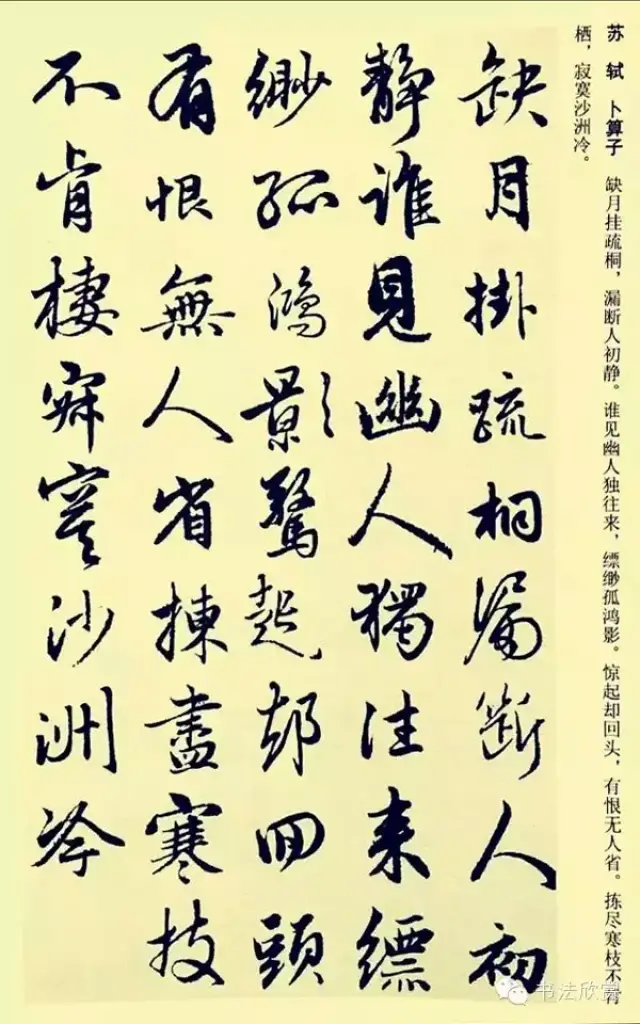 苏轼 卜算子 缺月挂疏桐，漏断人初静。谁见幽人独往来，缥缈孤鸿影。惊起却回头，有恨无人省。拣尽寒枝不肯
栖，寂寞沙洲冷。
缺月掛疏桐漏斷人初
静誰見幽人獨往来縹
緲孤鴻影驚起却回頭
有恨無人省揀盡寒枝
不肯棲寂寞沙洲冷
书法欣赏